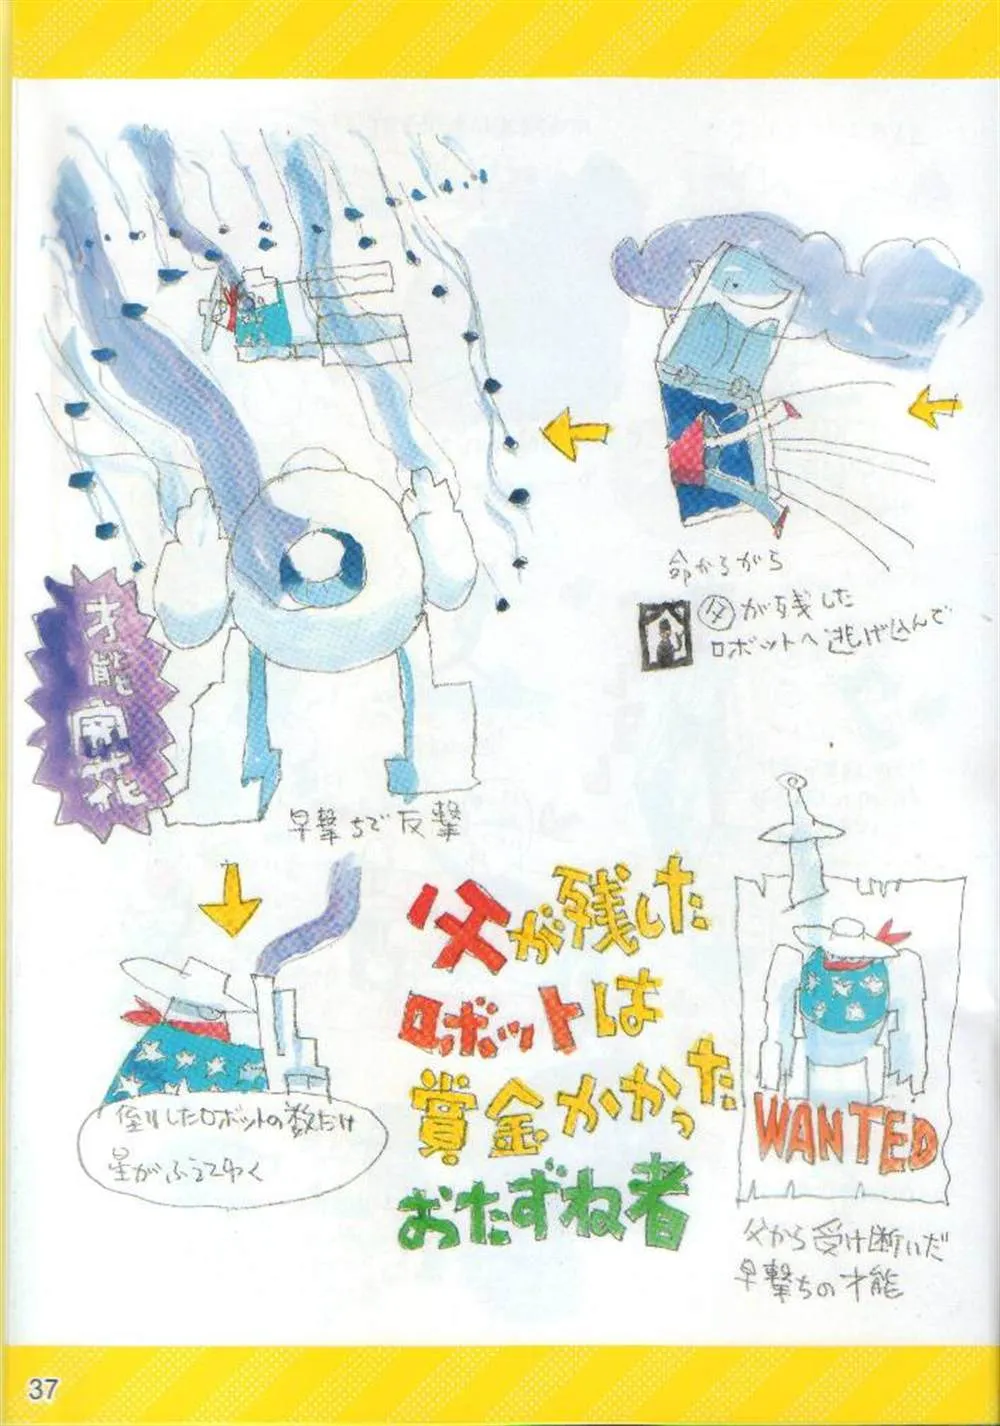 命からがら
父が残した
ロボットへ逃げ込んで
才能開花
早撃ちで反撃
倒したロボットの数だけ
星がふえてゆく
父が残した
ロボットは
賞金かかった
おたずね者
WANTED
父から受け断いだ
早撃ちの才能
37